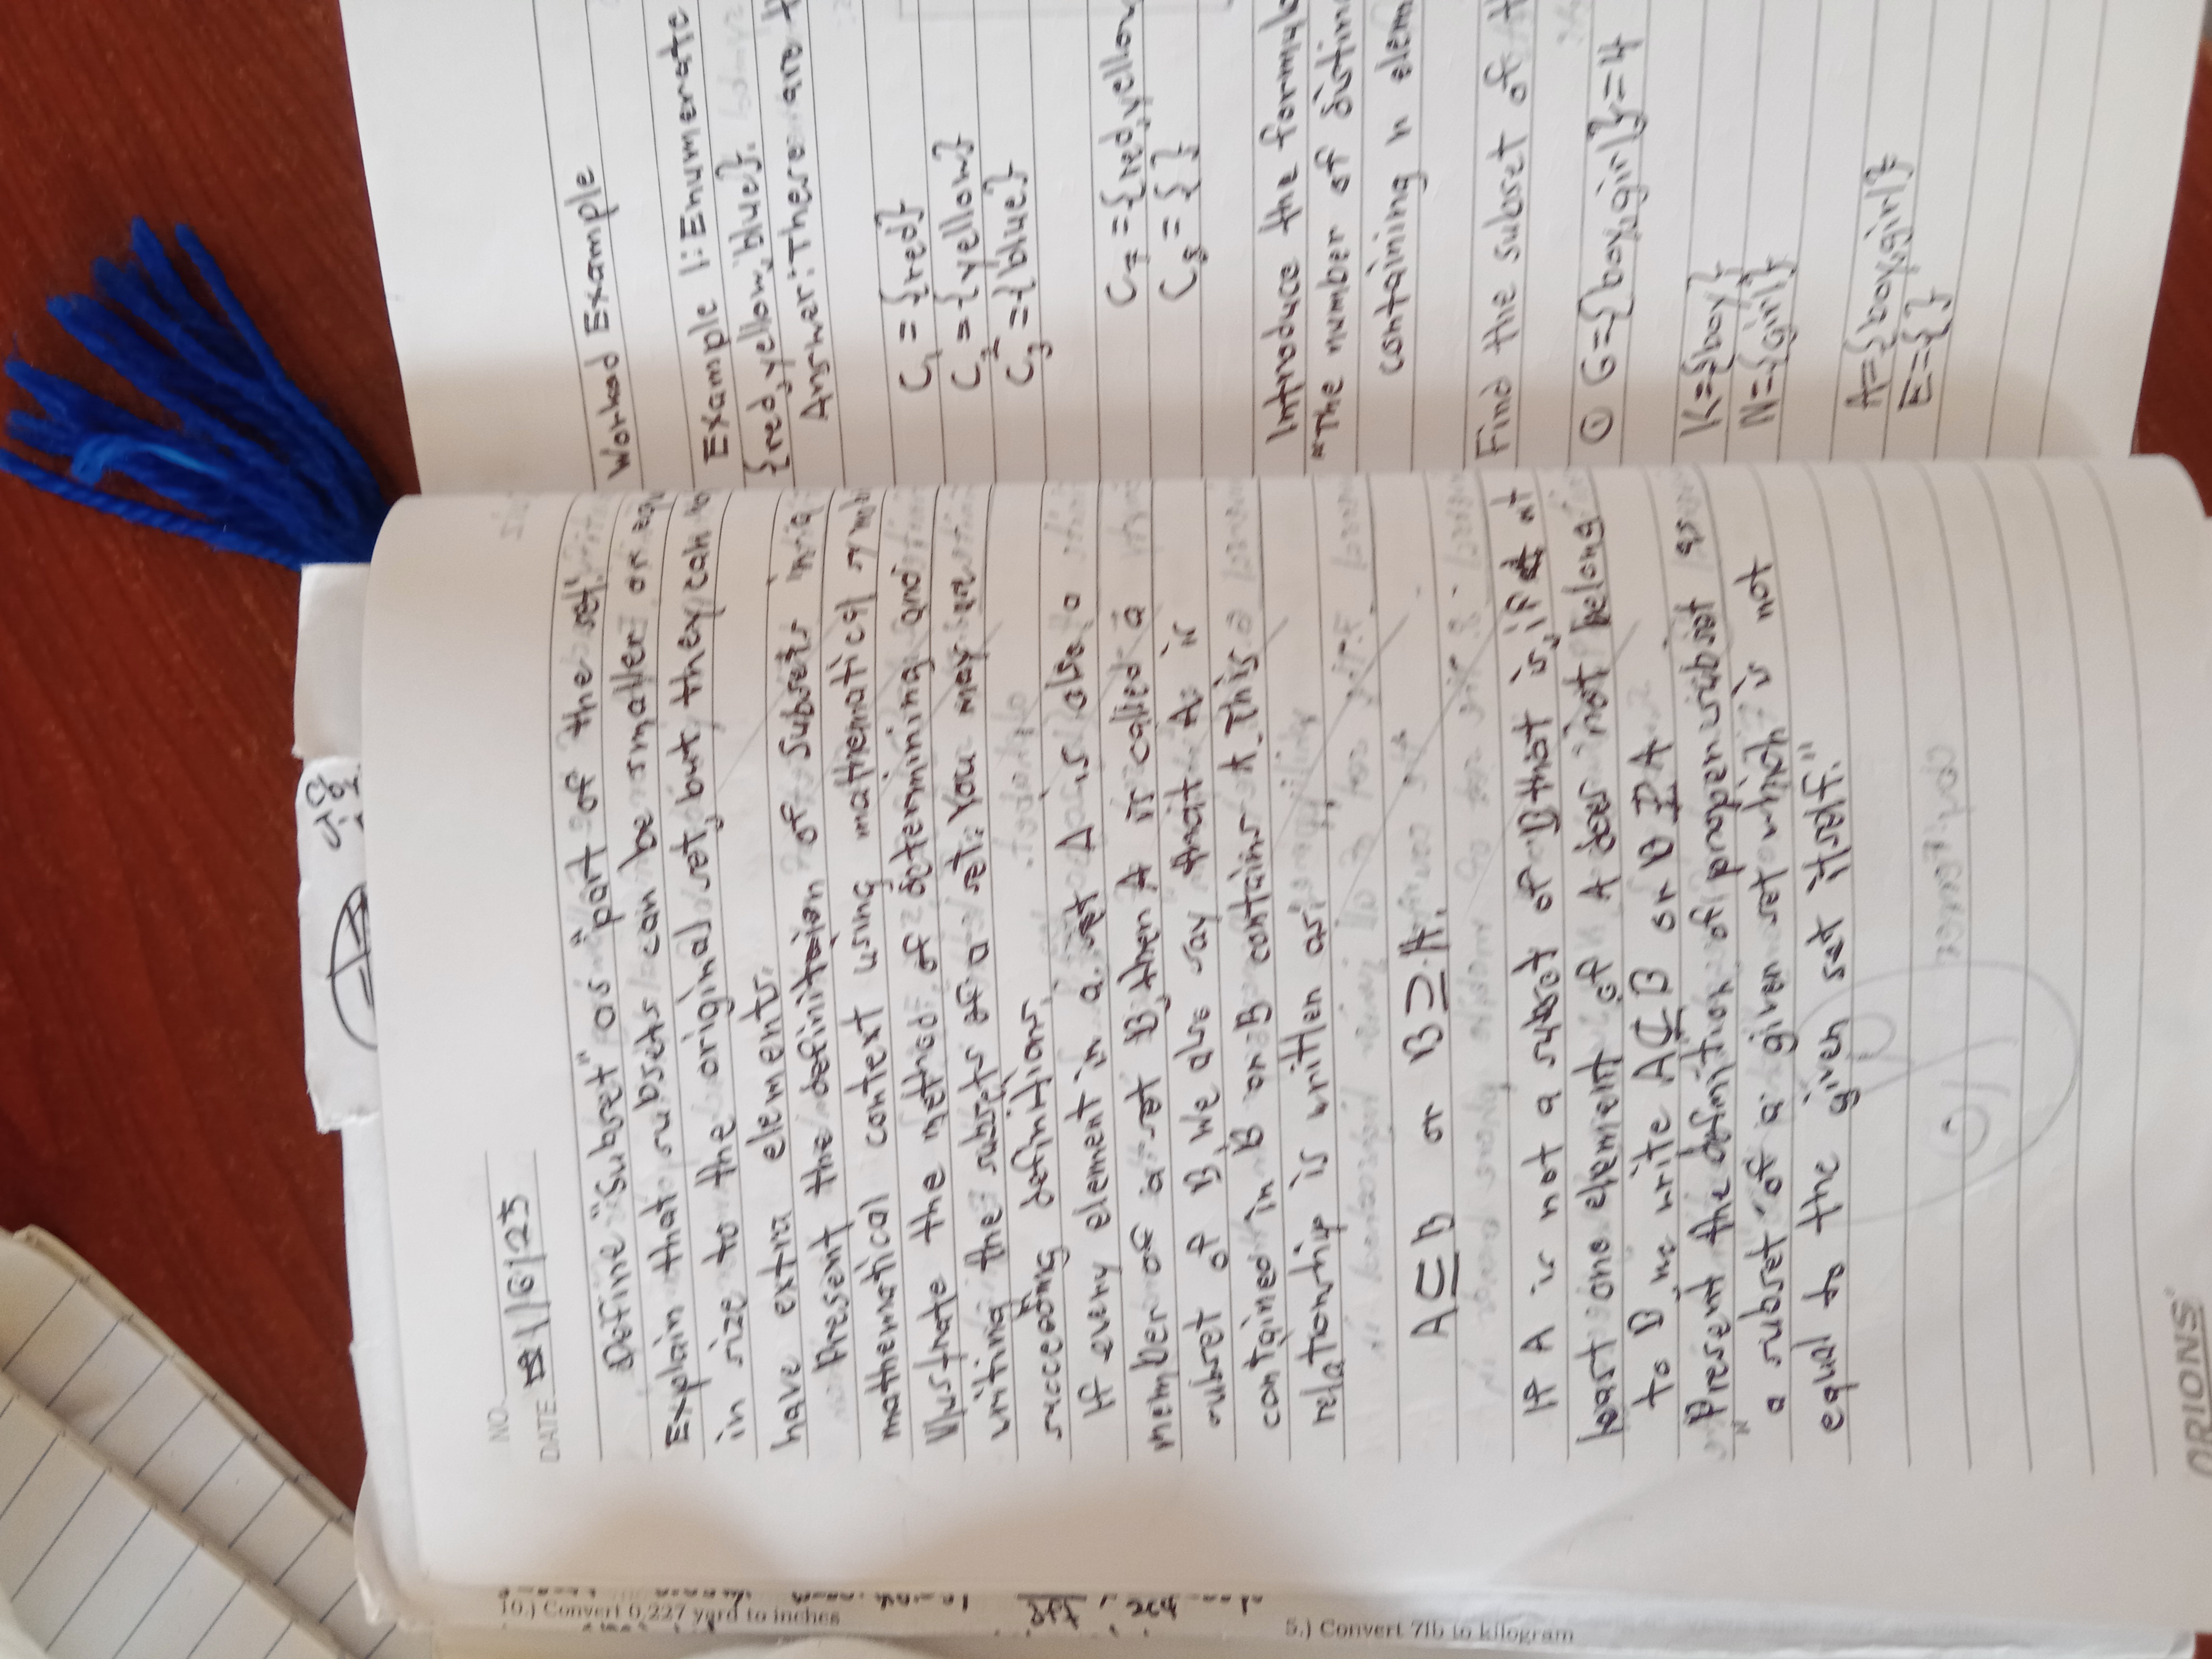 NO.
DATE 8/16/25
Define "Subset" as "part of the set".
Explain that subsets can be smaller or
in size to the original set, but they can
have extra elements.
Present the definition of subsets
mathematical context using mathematical
Illustrate the method of determining and
writing the subsets of a set. You may
succeeding definitions,
If every element in a set A is also a
member of a set B, then A is called a
subset of B we also say that A is
contained in B and B contains A. This
relationship is written as,
A ⊆ B or B ⊇ A.
If A is not a subset of B that is, if at
least one element of A does not belong
to B we write A ⊈ B or B ⊉ A
Present the definition of proper subset as
"a subset of a given set which is not
equal to the given set itself"
ORIONS
Worked Example
Example 1: Enumerate
{red, yellow, blue}.
Answer: There are
C₁ = {red}
C₂ = {yellow}
C₃ = {blue}
C₇ = {red, yellow
C₈ = { }
Introduce the formula
"The number of
containing n
Find the subset of
① G={boy,girl}=4
K={boy}
N={girl}
A={boy,girl}
E={ }
10.) Convert 0.227 yard to inches
5.) Convert 7lb to kilogram